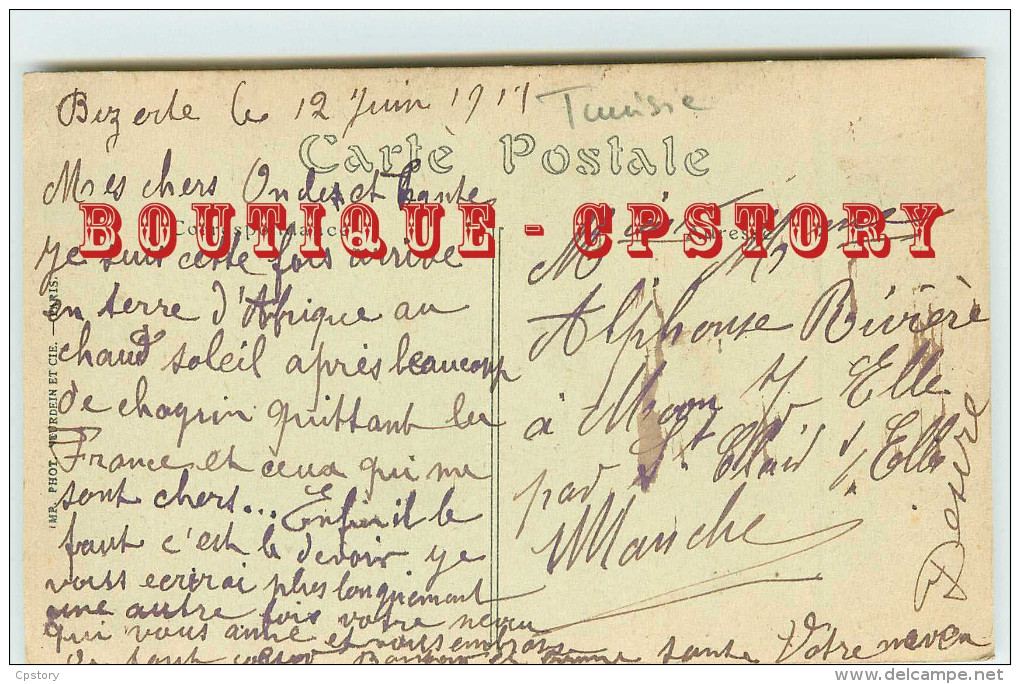 Bizerte le 12 Juin 1911
Tunisie
Carte Postale
Mes chers Oncles et tante
BOUTIQUE - CPSTORY
Correspondance
Adresse
je suis cette fois arrivé
en terre d'Afrique au
chaud soleil après beaucoup
de chagrin quittant la
France et ceux qui me
sont chers... Enfin il le
faut c'est le devoir je
vous ecrirai plus longuement
une autre fois votre neveu
qui vous aime et vous embrasse
de tout coeur
bonne sante Votre neveu
Desiré
M et Mme
Alphonse Rivière
à Moon s/ Elle
par St Clair s/ Elle
Manche
IMP. PHOT. NEURDEIN ET CIE. - PARIS